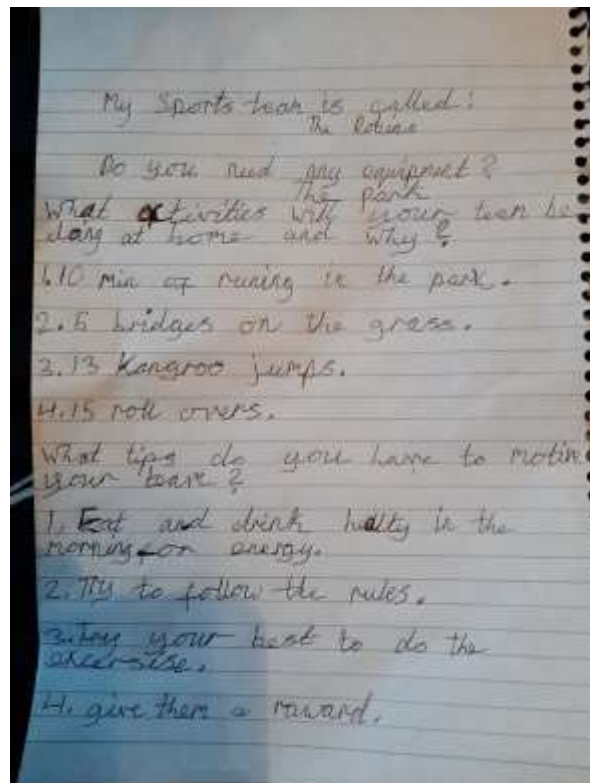 My Sports team is called:
The Robins
Do you need any equipment?
The park
What activities will your team be
doing at home and why?
1.10 min of runing in the park.
2.5 bridges on the grass.
3.13 Kangroo jumps.
4.15 roll overs.
What tips do you have to motiv
your team?
1. Eat and drink healty in the
morning for energy.
2. Try to follow the rules.
3. Try your best to do the
excersise.
4. give them a raward.